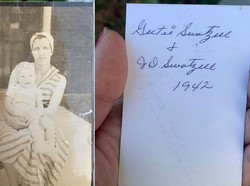 Gertie Swatzell
&
J D. Swatzell
1942